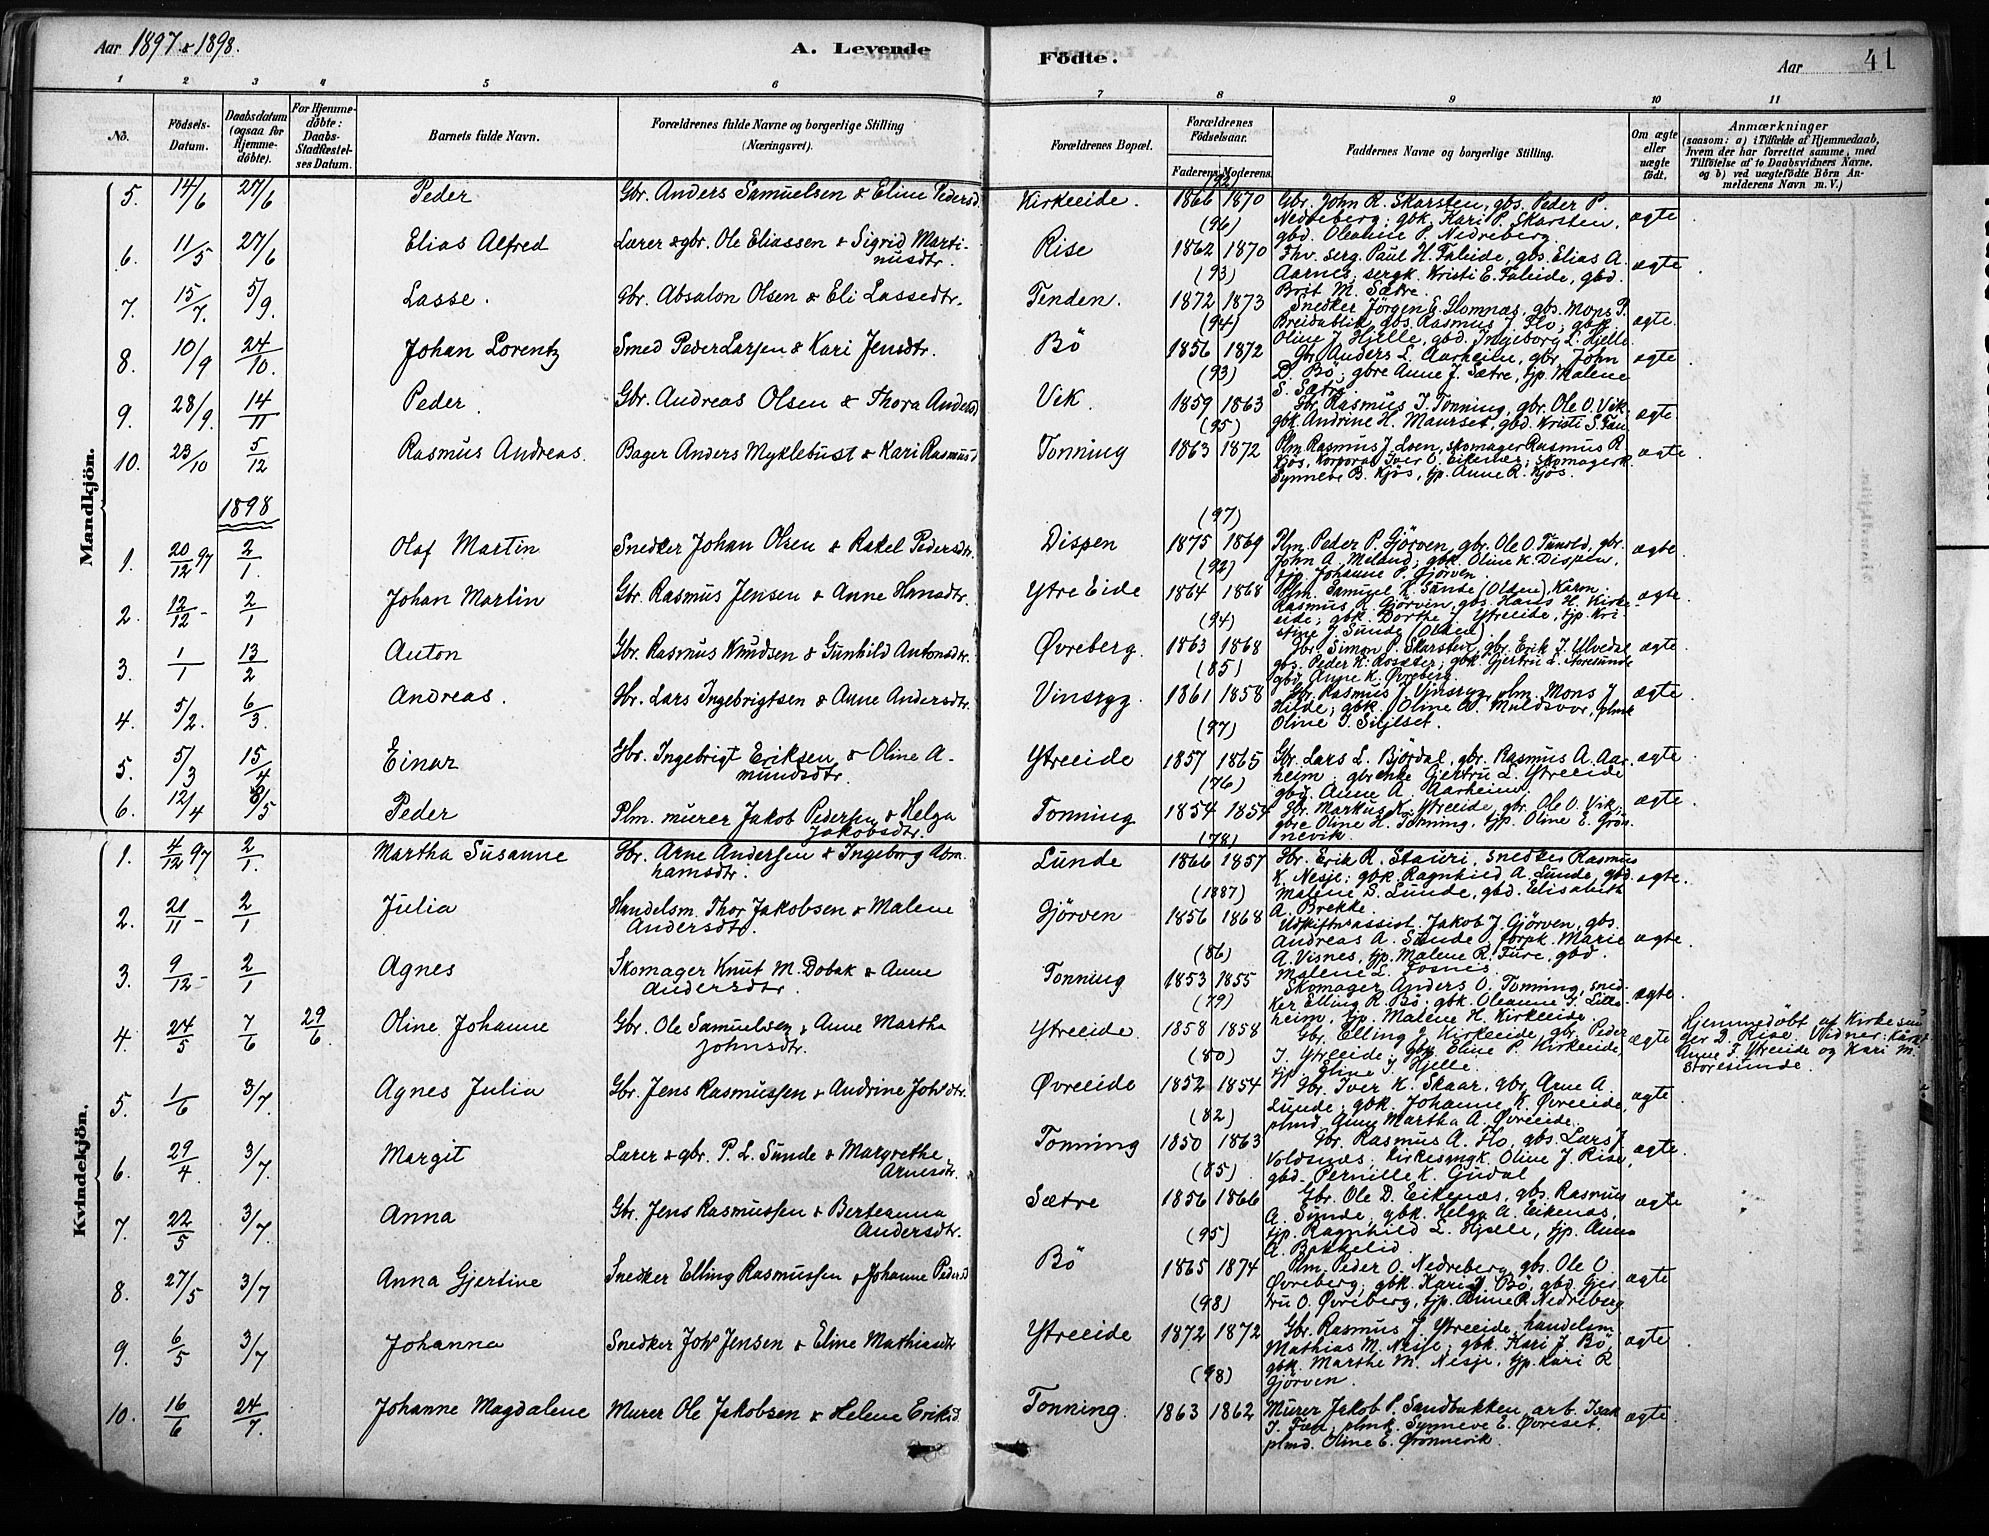 Aar 1897 & 1898.
A. Levende
Födte.
Aar
41
1 2 3 4 5 6 7 8 9 10 11
No.
Födsels-Datum.
Daabsdatum (ogsaa for Hjemme-döbte).
For Hjemme-döbte: Daabs-Stadfæstel-ses Datum.
Barnets fulde Navn.
Forældrenes fulde Navne og borgerlige Stilling (Næringsvei).
Forældrenes Bopæl.
Forældrenes Födselsaar.
Faderens Moderens
Faddernes Navne og borgerlige Stilling.
Om ægte eller uægte födt.
Anmærkninger
(saasom: a) i Tilfælde af Hjemmedaab, hvem der har forrettet samme, med Tilföielse af to Daabsvidners Navne, og b) ved uægtefödte Börn An-melderens Navn m. V.)
Mandkjön.
5. 14/6 27/6 Peder Gbr. Anders Samuelsen & Eline Pedersd. Kirkeeide. (92) 1866 1870 Gbr. John R. Skarsten, gbs. Peder P.
Nedreberg; gbk. Kari P. Skarsten,
gbd. Oleanne P. Nedreberg ægte
6. 11/5 27/6 Elias Alfred Lærer & gbr. Ole Eliassen & Sigrid Marti-
nusdtr. Rise (96) 1862 1870 Fhv. serg. Paul H. Faleide, gbs. Elias A.
Aarnes; sergk. Kristi E. Faleide, gbd.
Brit M. Sætre. ægte
7. 15/7. 5/9. Lasse. Gbr. Absalon Olsen & Eli Lassedtr. Tenden. (93) 1872 1873 Snedker Jörgen E. Flomnæs, gbs. Mons P.
Breidablik, gbs. Rasmus J. Flo; gbk.
Oline J. Hjelle, gbd. Ingeborg L. Hjelle ægte
8. 10/9 24/10. Johan Lorentz Smed Peder Larsen & Kari Jensdtr. Bö (94) 1856 1872 Gbr. Anders L. Aarheim, gbr. John
D. Bö; gbre Anne J. Sætre, tjp. Malene
S. Sætre ægte
9. 28/9. 14/11 Peder. Gbr. Andreas Olsen & Thora Andersd Vik. (93) 1859 1863 Gbr. Rasmus J. Tonning, gbr. Ole O. Vik;
gbk. Andrine H. Maurset, gbd. Kristi S. ægte
10. 23/10 5/12 Rasmus Andreas. Bager Anders Myklebust & Kari Rasmusd Tonning (95) 1863 1872 Plm. Rasmus J. Loen, skomager Rasmus R.
Kjös, korporal Iver O. Eikenæs; skomagerk.
Synneve B. Kjös, tjp. Anne R. Kjös. ægte
1898
1. 20/12 97 2/1. Olaf Martin Snedker Johan Olsen & Rakel Pedersdtr. Dispen (97) 1875 1869 Plm. Peder P. Gjörven, gbr. Ole O. Tunold, gbr.
John A. Meland; gbk. Oline K. Dispen,
tjp. Johanne P. Gjörven. ægte
2. 12/12 - 2/1 Johan Martin Gbr. Rasmus Jensen & Anne Hansdtr. Ytre Eide (92) 1864 1868 Plm. Samuel K. Sunde (Olden), Karm.
Rasmus R. Gjörven, gbs. Hans H. Kirke-
eide; gbk. Dorthe J. Ytreeide, tjp. Kri-
stine J. Sunde (Olden) ægte
3. 1/1 13/2 Anton Gbr. Rasmus Knudsen & Gunhild Antonsdtr. Øvreberg. (94) 1863 1868 Gbr. Simon P. Skarsten, gbr. Erik J. Ulvedal
gbs. Peder K. Rosæter; gbk. Gjertru L. Storesunde
gbd. Anne K. Øvreberg. ægte
4. 5/2. 6/3. Andreas. Gbr. Lars Ingebrigtsen & Anne Andersdtr. Vinsryg. (85) 1861 1858 Gbr. Rasmus J. Vinsryg, plm. Mons J.
Hilde; gbk. Oline A. Muldsvor, plmk
Oline J. Siljeset. ægte
5. 5/3 15/4 Einar Gbr. Ingebrigt Eriksen & Oline A-
mundsdtr. Ytreeide (97) 1857 1865 Gbr. Lars L. Björdal, gbr. Rasmus A. Aar-
heim; gbrenke Gjertru L. Ytreeide
gbd. Anne A. Aarheim. ægte
6. 12/4 8/5 Peder Plm. murer Jakob Pedersen & Helga
Jakobsdtr. Tonning (76) 1854 1854 Gbr. Markus K. Ytreeide, gbr. Ole O. Vik;
gbre Oline H. Tonning, tjp. Oline E. Grön-
nevik. ægte
Kvindekjön.
1. 4/12 97 2/1. Martha Susanne Gbr. Arne Andersen & Ingeborg Abra-
hamsdtr. Lunde (78) 1866 1857 Gbr. Erik R. Stauri, snedker Rasmus
K. Nesje; gbk. Ragnhild A. Lunde, gbd.
Malene S. Lunde, gbd. Elisabeth
A. Brekke. ægte.
2. 21/11 - 2/1 Julia Handelsm. Thor Jakobsen & Malene
Andersdtr. Gjörven (1887) 1856 1868 Udskiftn.assist. Jakob J. Gjörven, gbs.
Andreas A. Sunde, forpk. Marie
A. Visnes, tjp. Malene R. Fure, gbd.
Malene L. Fosnes. ægte.
3. 9/12 - 2/1 Agnes Skomager Knut M. Dobak & Anne
Andersdtr. Tonning (86) 1853 1855 Skomager Anders O. Tonning, sned-
ker Elling R. Bö; gbk. Oleanne G. Lille-
heim, tjp. Malene H. Kirkeeide. ægte
4. 24/5 7/6 29/6. Oline Johanne Gbr. Ole Samuelsen & Anne Martha
Johnsdtr. Ytreeide. (79) 1858 1858 Gbr. Elling J. Kirkeeide, gbr. Peder
J. Ytreeide; gbk. Eline P. Kirkeeide,
tjp. Eline J. Hjelle. ægte Hjemmedöbt af Kirkesan-
ger D. Rise. Vidner:
Anne T. Ytreeide og Kari M.
Storesunde.
5. 1/6 3/7. Agnes Julia Gbr. Jens Rasmussen & Andrine Johsdtr. Øvreeide (80) 1852 1854 Gbr. Iver K. Skaar, gbr. Arne A.
Lunde; gbk. Johanne K. Øvreeide,
plmd. Anne Martha A. Øvreeide. ægte
6. 29/4. 3/7. Margit Lærer & gbr. P. L. Sunde & Margrethe
Arnesdtr. Tonning (82) 1850 1863 Gbr. Rasmus A. Flo, gbs. Lars J.
Voldsnæs, kirkesngk. Oline J. Rise,
gbd. Pernille K. Gudal ægte.
7. 22/5 3/7. Anna Gbr. Jens Rasmussen & Berteanna
Andersdtr. Sætre (85) 1856 1866 Gbr. Ole D. Eikenæs, gbs. Rasmus
A. Sunde, gbk. Helga A. Eikenæs,
tjp. Ragnhild L. Hjelle, tjp. Anna
A. ægte
8. 27/5 3/7 Anna Gjertine Snedker Elling Rasmussen & Johanne Pedersd Bö (95) 1865 1874 Plm. Peder O. Nedreberg, gbs. Ole O.
Øvreberg; gbk. Kari J. Bö, gbd. Gjer-
tru O. Øvreberg, tjp. Anne P. Nedreberg ægte
9. 6/5 3/7 Johanna Snedker Joh Jensen & Eline Mathiasdtr Ytreeide (98) 1872 1872 Gbr. Rasmus J. Ytreeide, handelsm.
Mathias M. Nesje; gbk. Kari J. Bö,
gbk. Marthe M. Nesje, tjp. Kari R
Gjörven. ægte
10. 16/6 24/7. Johanne Magdalene Murer Ole Jakobsen & Helene Eriksd. Tonning. (98) 1863 1862 Murer Jakob P. Sandbakken, arb. Isak
I. plmk. Synneve E. Øvreset,
plmd. Oline E. Grönnevik. ægte.